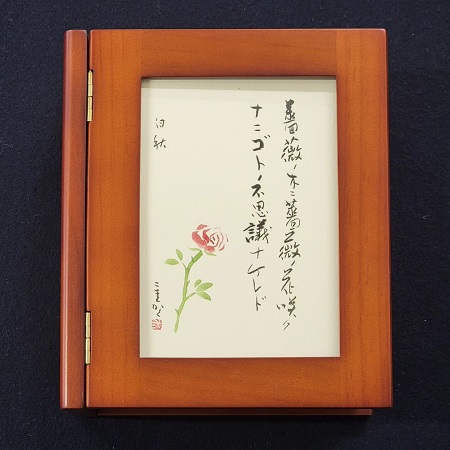 薔薇ノ木ニ薔薇ノ花咲ク
ナニゴトノ不思議ナケレド
白秋